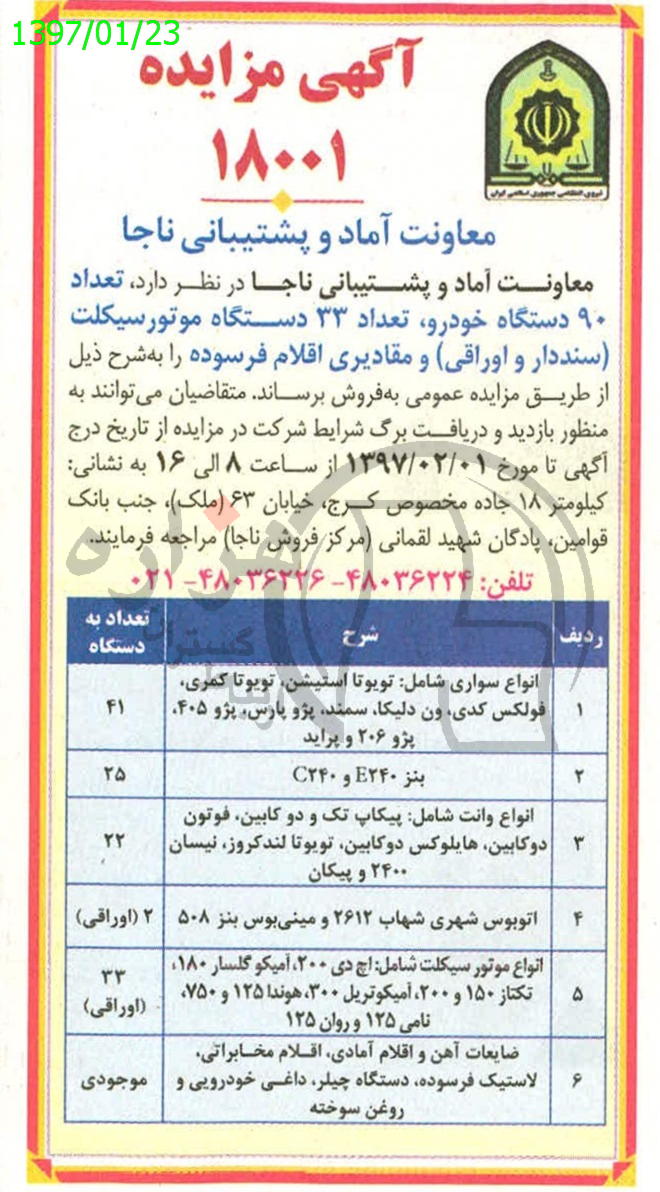 1397/01/23
آگهی مزایده
۱۸۰۰۱
نیروی انتظامی جمهوری اسلامی ایران
معاونت آماد و پشتیبانی ناجا
معاونت آماد و پشتیبانی ناجا در نظر دارد، تعداد
۹۰ دستگاه خودرو، تعداد ۳۳ دستگاه موتورسیکلت
(سنددار و اوراقی) و مقادیری اقلام فرسوده را به‌شرح ذیل
از طریق مزایده عمومی به‌فروش برساند. متقاضیان می‌توانند به
منظور بازدید و دریافت برگ شرایط شرکت در مزایده از تاریخ درج
آگهی تا مورخ ۱۳۹۷/۰۲/۰۱ از ساعت ۸ الی ۱۶ به نشانی:
کیلومتر ۱۸ جاده مخصوص کرج، خیابان ۶۳ (ملک)، جنب بانک
قوامین، پادگان شهید لقمانی (مرکز فروش ناجا) مراجعه فرمایند.
تلفن: ۴۸۰۳۶۲۲۴- ۴۸۰۳۶۲۲۶- ۰۲۱
ردیف شرح تعداد به
دستگاه
انواع سواری شامل: تویوتا استیشن، تویوتا کمری،
۱ فولکس کدی، ون دلیکا، سمند، پژو پارس، پژو ۴۰۵، ۴۱
پژو ۲۰۶ و پراید
۲ بنز E۲۴۰ و C۲۴۰ ۲۵
انواع وانت شامل: پیکاپ تک و دو کابین، فوتون
۳ دوکابین، هایلوکس دوکابین، تویوتا لندکروز، نیسان ۲۲
۲۴۰۰ و پیکان
۴ اتوبوس شهری شهاب ۲۶۱۲ و مینی‌بوس بنز ۵۰۸ ۲ (اوراقی)
انواع موتور سیکلت شامل: اچ دی ۲۰۰، آمیکو گلسار ۱۸۰،
۵ تکتاز ۱۵۰ و ۲۰۰، آمیکوتریل ۳۰۰، هوندا ۱۲۵ و ۷۵۰، ۳۳
نامی ۱۲۵ و روان ۱۲۵ (اوراقی)
ضایعات آهن و اقلام آمادی، اقلام مخابراتی،
۶ لاستیک فرسوده، دستگاه چیلر، داغی خودرویی و موجودی
روغن سوخته
هزاره
گستران